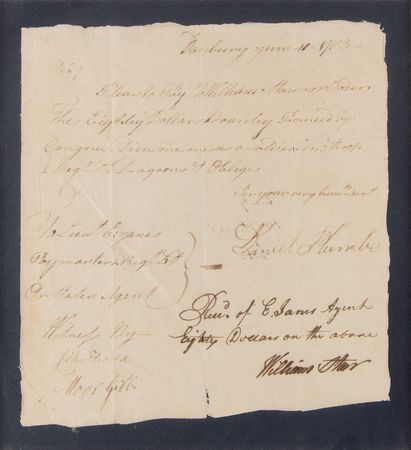 Danbury June 11. 1783
Sir,
Please to Pay William Starr or Order
The Eighty Dollar Bounty Promised by
Congress me as a Soldier in Troop
2 Regt Lt Dragoons & Oblige
Sir your very humb
Daniel Plumbe
To Lieut E. Janes
Paymaster 2 Regt Lt
Or States Agent
Recd. of E. Janes Agent
Eighty Dollars on the above
William Starr
Witness By
John Dodd
Moor Gibb